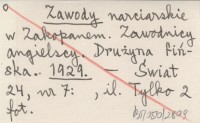 Zawody narciarskie
w Zakopanem. Zawodnicy
angielscy. Drużyna fiń-
ska. 1929. — Świat
24, nr 7: , il. Tylko 2
fot.